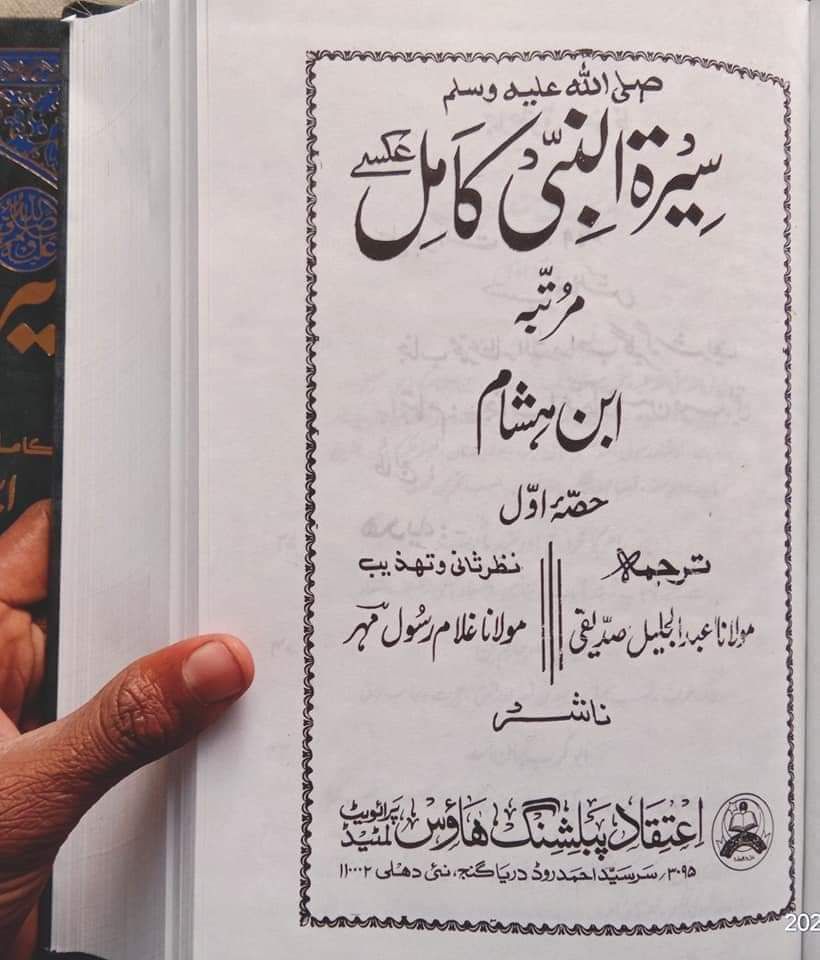 صلی اللہ علیہ وسلم
سِیرۃ النبیّ کامِل عکسی
مُرتّبہ
ابن ہشام
حصّۂ اوّل
ترجمہ
مولانا عبد الجلیل صدّیقی
نظرثانی و تهذیب
مولانا غلام رسُول مہر
ناشر
اعتقاد پبلشنگ هاؤس پرائویٹ لمٹیڈ
۳۰۹۵/ سر سیّد احمد روڈ دریا گنج، نئی دهلی ۱۱۰۰۰۲
202